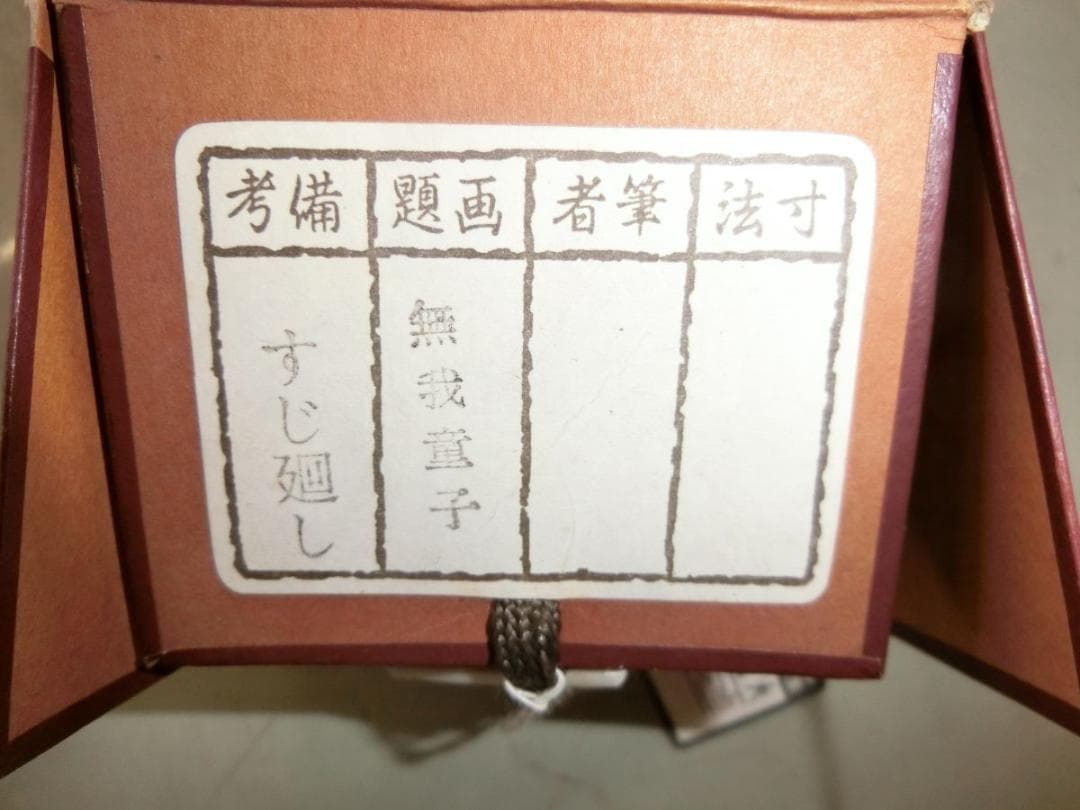 寸法
筆者
画題
無我童子
備考
すじ廻し